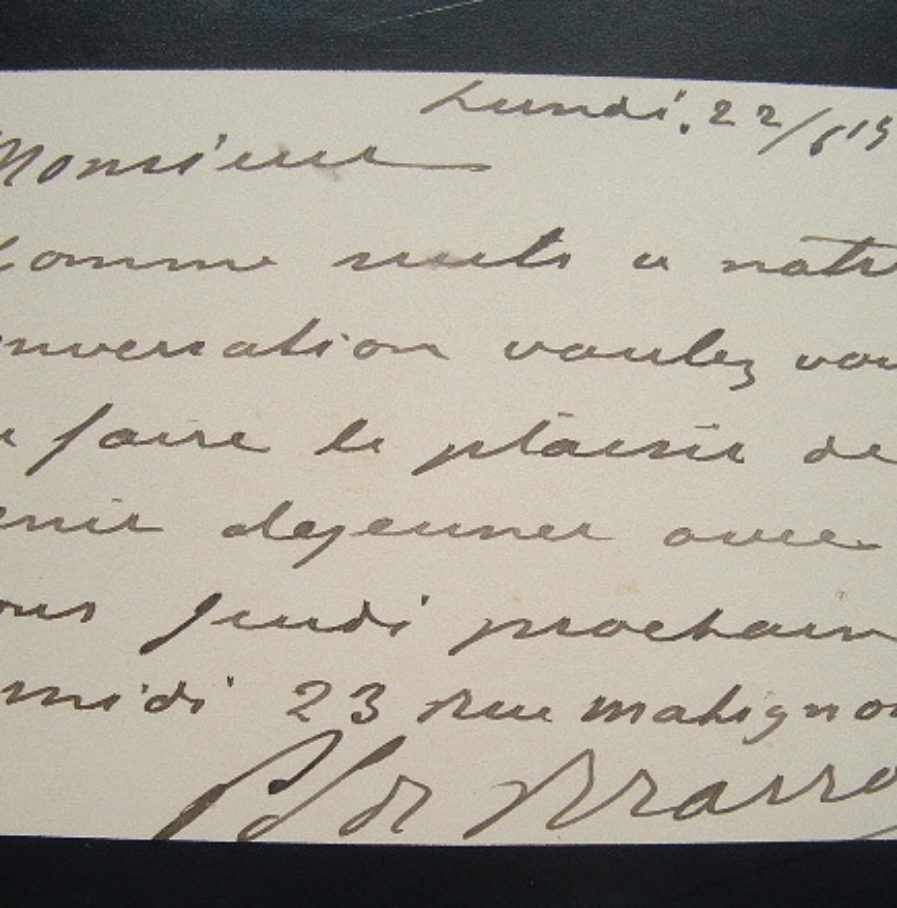 Lundi. 22/6 15
Monsieur
Comme suite a notr
nversation voulez vou
faire le plaisir de
enir dejeuner avec
ous jeudi prochain
midi 23 rue matignon
de